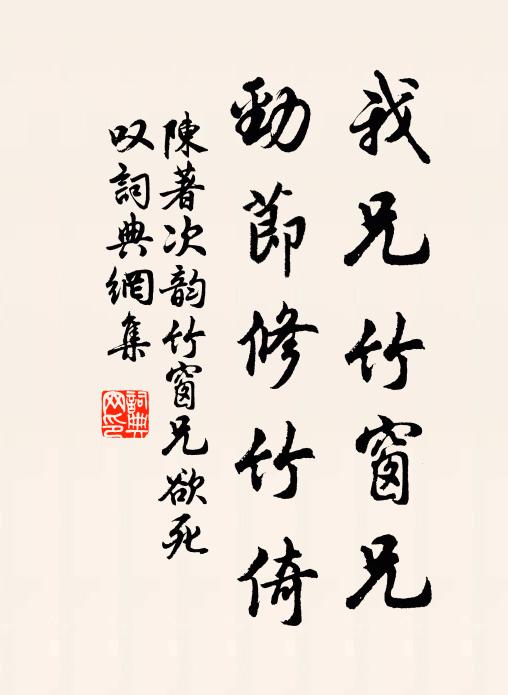 我兄竹窗兄
勁節修竹倚
陳著次韵竹窗兄欲死
叹詞典網集
詞典網印